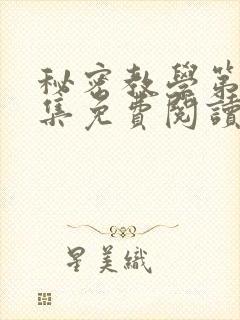 秘密教學第
集免費閱讀
星美織